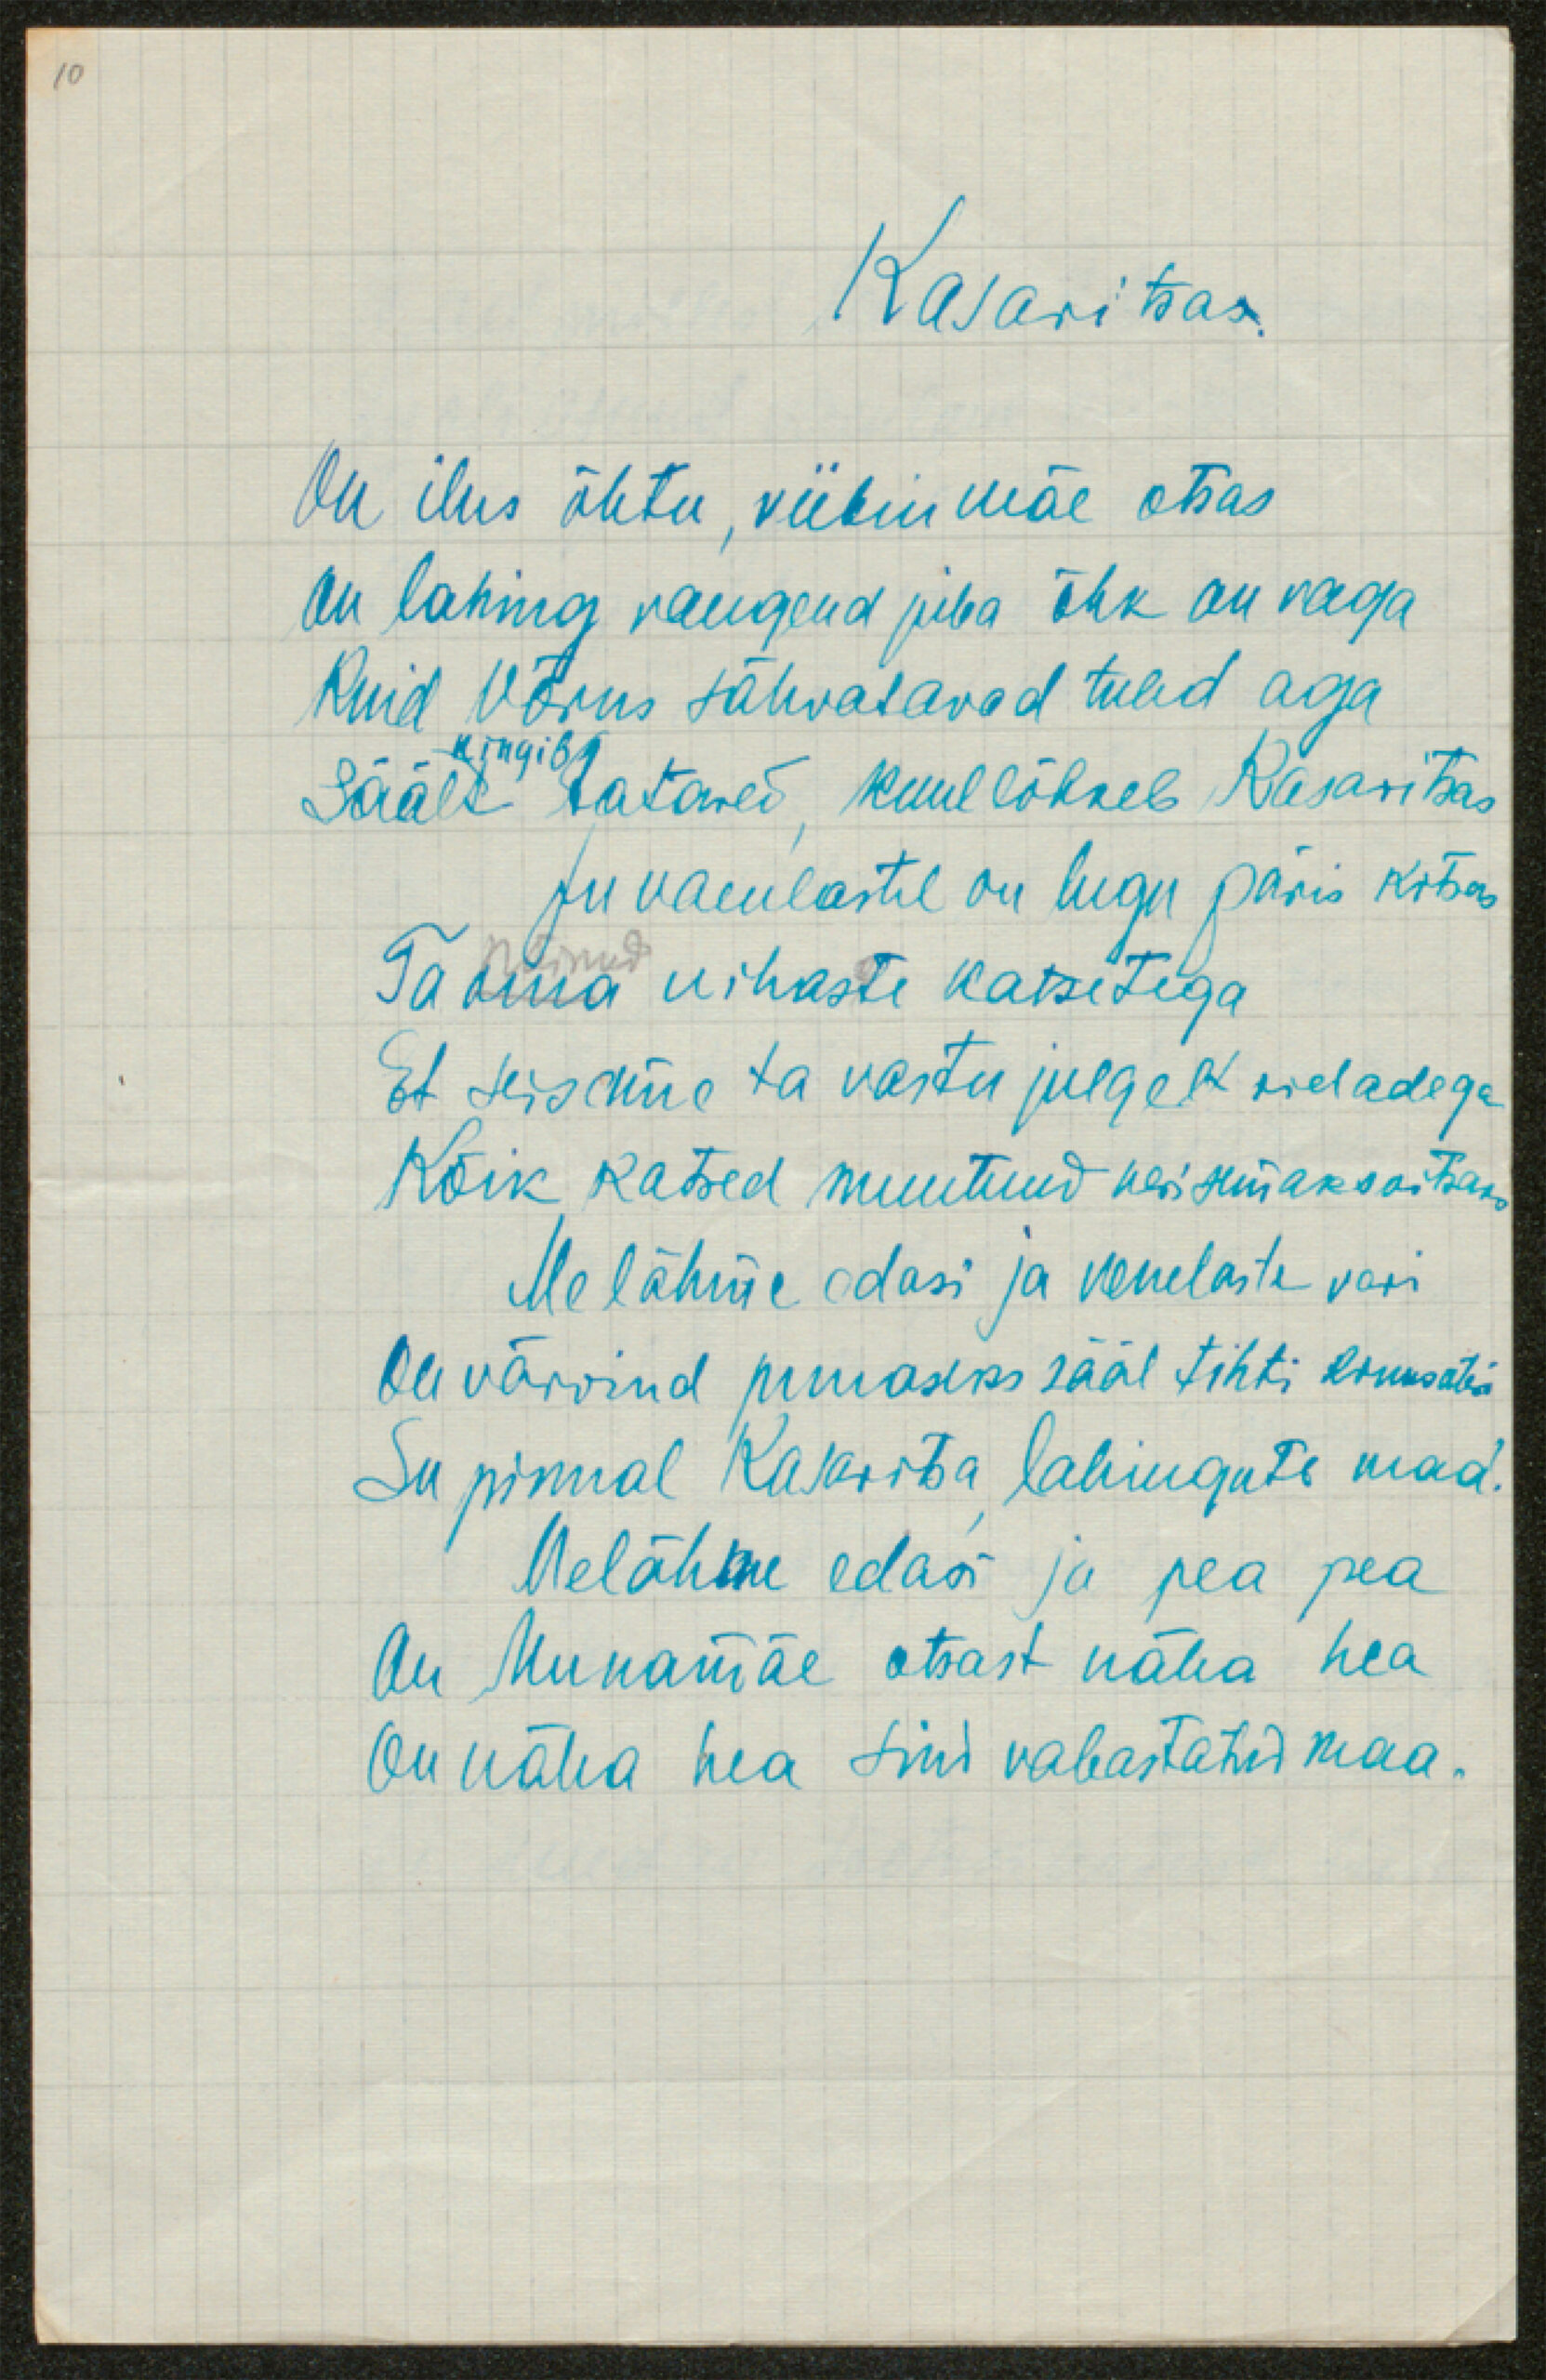 10
Kasaritsas.
On ilus õhtu, viibin mäe otsas
On lahing raugend juba õhk on vaga
Kuid Võrus sähvatavad tuled aga
kingib
Säält tatarei, kuul lõhkeb Kasaritsas
Ju vaenlastel on lugu päris kitsas
nõinud
Ta oma vihaste katsetega
Et seisame ta vastu julgelt ridadega
Kõik katsed muutund
Me lähme edasi ja venelaste veri
On värvind punaseks sääl tihti
Su pinnal Kasaritsa, lahingute maa!
Me lähme edasi ja pea pea
On Munamäe otsast näha hea
On näha hea sind vabastatud maa.